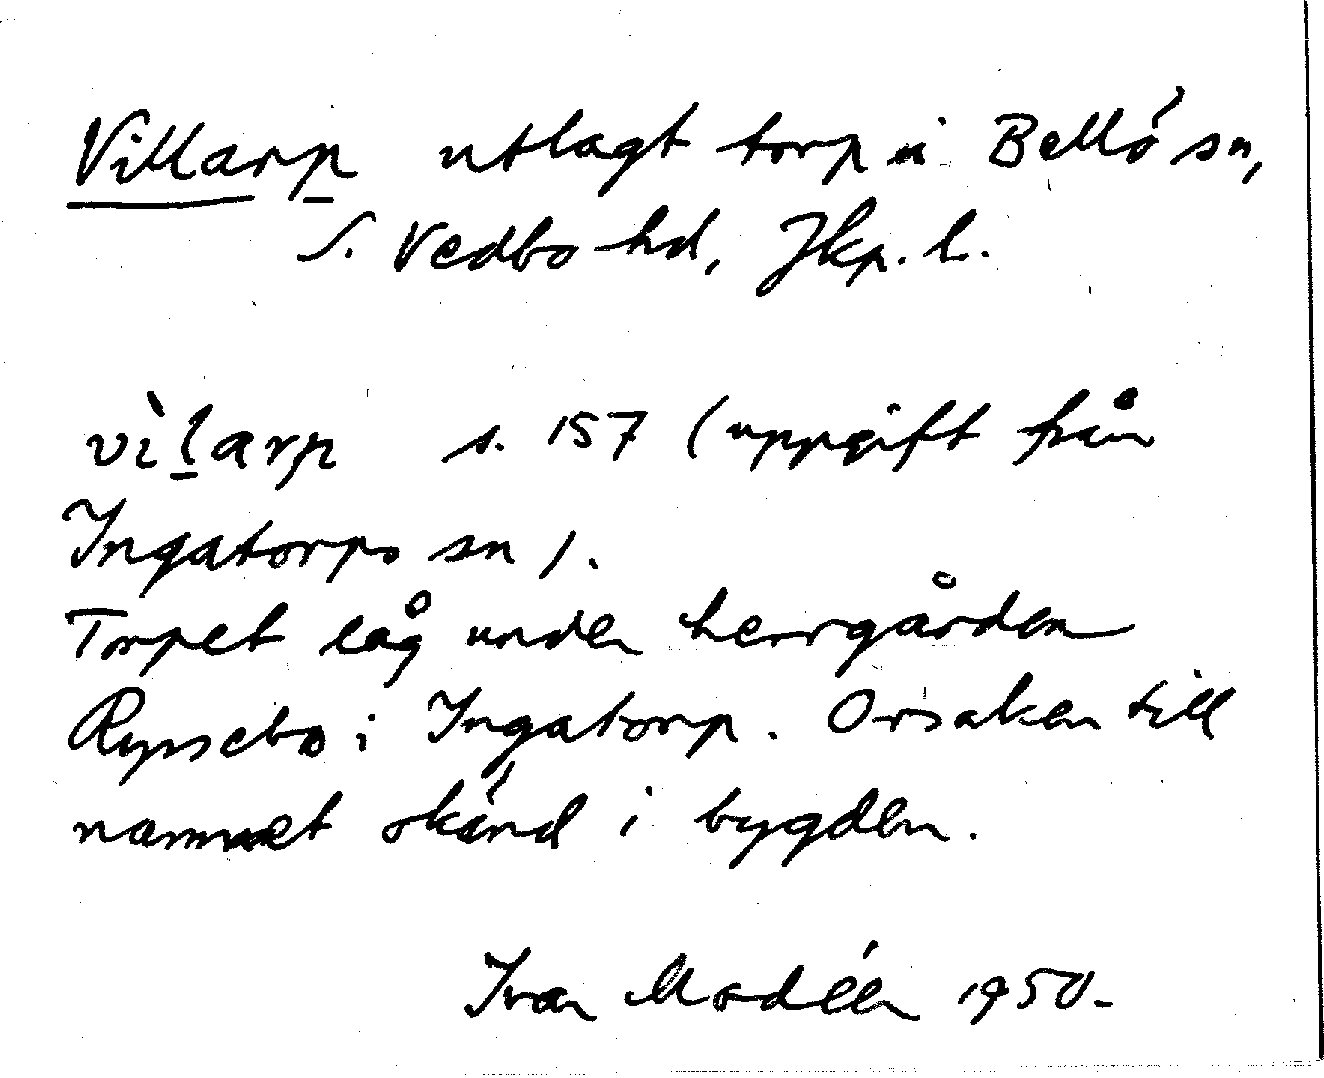 Villarp utlagt torp i Bellö sn,
S. Vedbo hd, Jkp. l.
vìlarp s. 157 (uppgift från
Ingatorps sn).
Torpet låg under herrgården
Ryssebo i Ingatorp. Orsaken till
namnet okänd i bygden.
Ivar Modéer 1950.